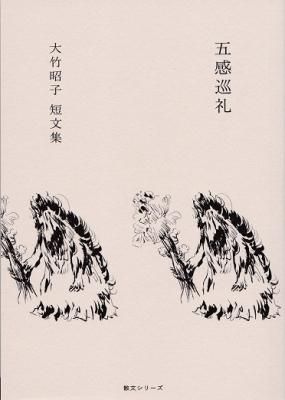 五感巡礼
大竹昭子 短文集
散文シリーズ